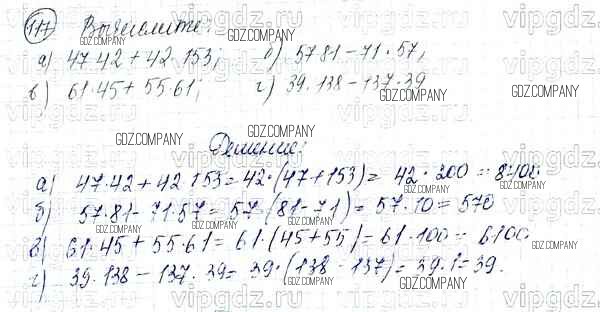 117 Вычислите:
а) 47·42+42·153; б) 57·81-71·57;
в) 61·45+55·61; г) 39·138-137·39
Решение:
а) 47·42+42·153=42·(47+153)=42·200=8400
б) 57·81-71·57=57·(81-71)=57·10=570
в) 61·45+55·61=61·(45+55)=61·100=6100
г) 39·138-137·39=39·(138-137)=39·1=39.